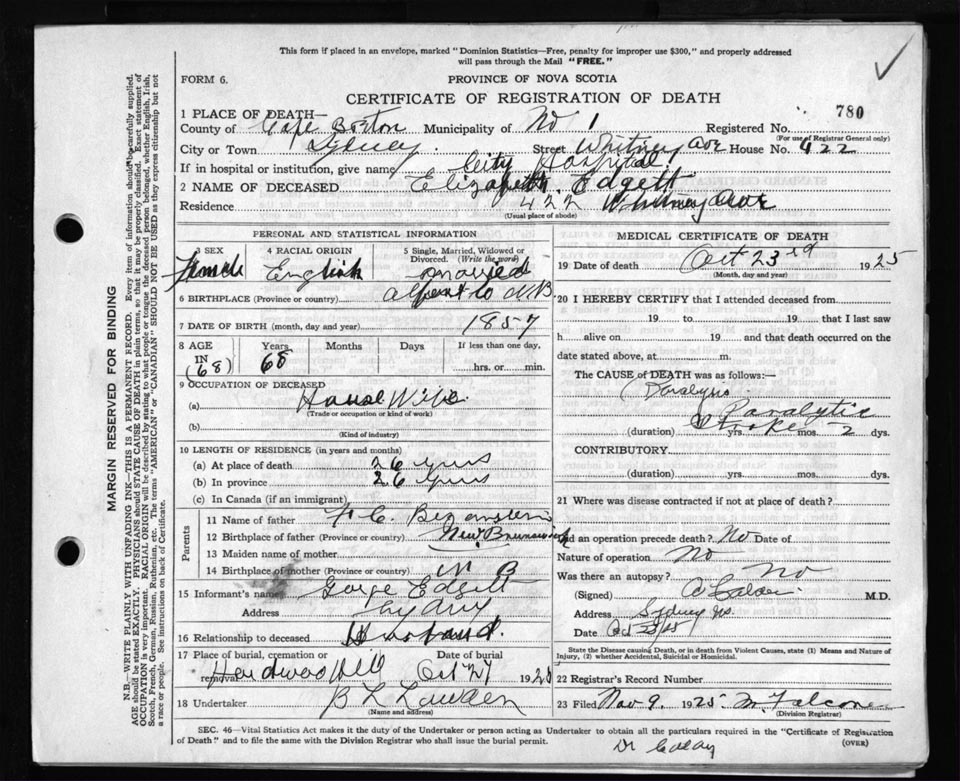 This form if placed in an envelope, marked "Dominion Statistics—Free, penalty for improper use $300," and properly addressed
will pass through the Mail "FREE."
FORM 6.
PROVINCE OF NOVA SCOTIA
CERTIFICATE OF REGISTRATION OF DEATH
780
1 PLACE OF DEATH—
County of Cape Breton Municipality of No 1 Registered No.
(For use of Registrar General only)
City or Town Sydney. Street Whitney Ave House No. 422
If in hospital or institution, give name City Hospital
2 NAME OF DECEASED Elizabeth. Edgett
Residence 422 Whitney Ave
(Usual place of abode)
PERSONAL AND STATISTICAL INFORMATION
3 SEX Female
4 RACIAL ORIGIN English
5 Single, Married, Widowed or Divorced. (Write the word) married
6 BIRTHPLACE (Province or country) N B
7 DATE OF BIRTH (month, day and year) 1857
8 AGE IN (68) Years 68 Months Days If less than one day, hrs. or min.
9 OCCUPATION OF DECEASED
(a) House Wife
(Trade or occupation or kind of work)
(b)
(Kind of industry)
10 LENGTH OF RESIDENCE (in years and months)
(a) At place of death 26 years
(b) In province 26 years
(c) In Canada (if an immigrant)
Parents
11 Name of father
12 Birthplace of father (Province or country) New Brunswick
13 Maiden name of mother
14 Birthplace of mother (Province or country) N B
15 Informant's name George Edgett
Address Sydney
16 Relationship to deceased Husband.
17 Place of burial, cremation or removal Hardwood Hill Date of burial Oct 27 1925
18 Undertaker B L
(Name and address)
MEDICAL CERTIFICATE OF DEATH
19 Date of death Oct 23rd 1925
(Month, day and year)
20 I HEREBY CERTIFY that I attended deceased from
19 to 19 that I last saw
h alive on 19 and that death occurred on the
date stated above, at m.
The CAUSE of DEATH was as follows:—
Paralysis
Paralytic
Stroke
(duration) yrs. mos. 2 dys.
CONTRIBUTORY
(duration) yrs. mos. dys.
21 Where was disease contracted if not at place of death?
Did an operation precede death? No Date of
Nature of operation No
Was there an autopsy? No
(Signed) M.D.
Address Sydney
Date Oct 25/25
State the disease causing Death, or in death from Violent Causes, state (1) Means and Nature of
Injury, (2) whether Accidental, Suicidal or Homicidal.
22 Registrar's Record Number
23 Filed Nov 9. 1925 M. Falconer
(Division Registrar)
SEC. 46—Vital Statistics Act makes it the duty of the Undertaker or person acting as Undertaker to obtain all the particulars required in the "Certificate of Registration
of Death" and to file the same with the Division Registrar who shall issue the burial permit.
(OVER)
Dr
MARGIN RESERVED FOR BINDING
N.B.—WRITE PLAINLY WITH UNFADING INK—THIS IS A PERMANENT RECORD. Every item of information should be carefully supplied.
AGE should be stated EXACTLY. PHYSICIANS should STATE CAUSE OF DEATH in plain terms, so that it may be properly classified. Exact statement of
OCCUPATION is very important. RACIAL ORIGIN will be described by stating to what people or tongue the deceased person belonged, whether English, Irish,
Scotch, French, German, Russian, Ruthenian, etc. The terms "AMERICAN" or "CANADIAN" SHOULD NOT BE USED as they express citizenship but not
a race or people. See instructions on back of Certificate.